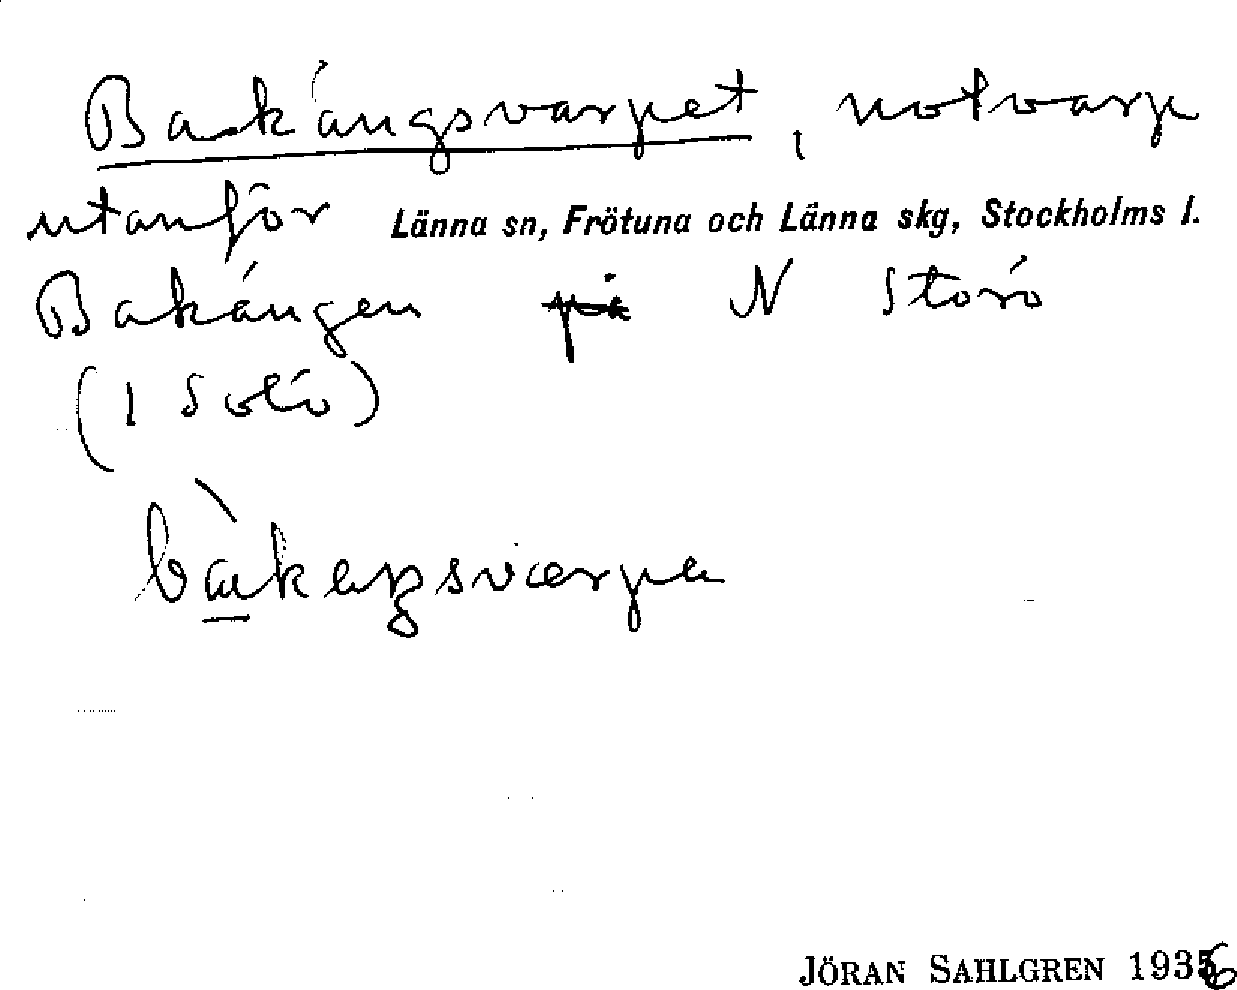 Bakängsvarpet, notvarp
utanför Länna sn, Frötuna och Länna skg, Stockholms l.
Bakängen på N Storö
(I Solö)
bakeŋsværpe
JÖRAN SAHLGREN 1936